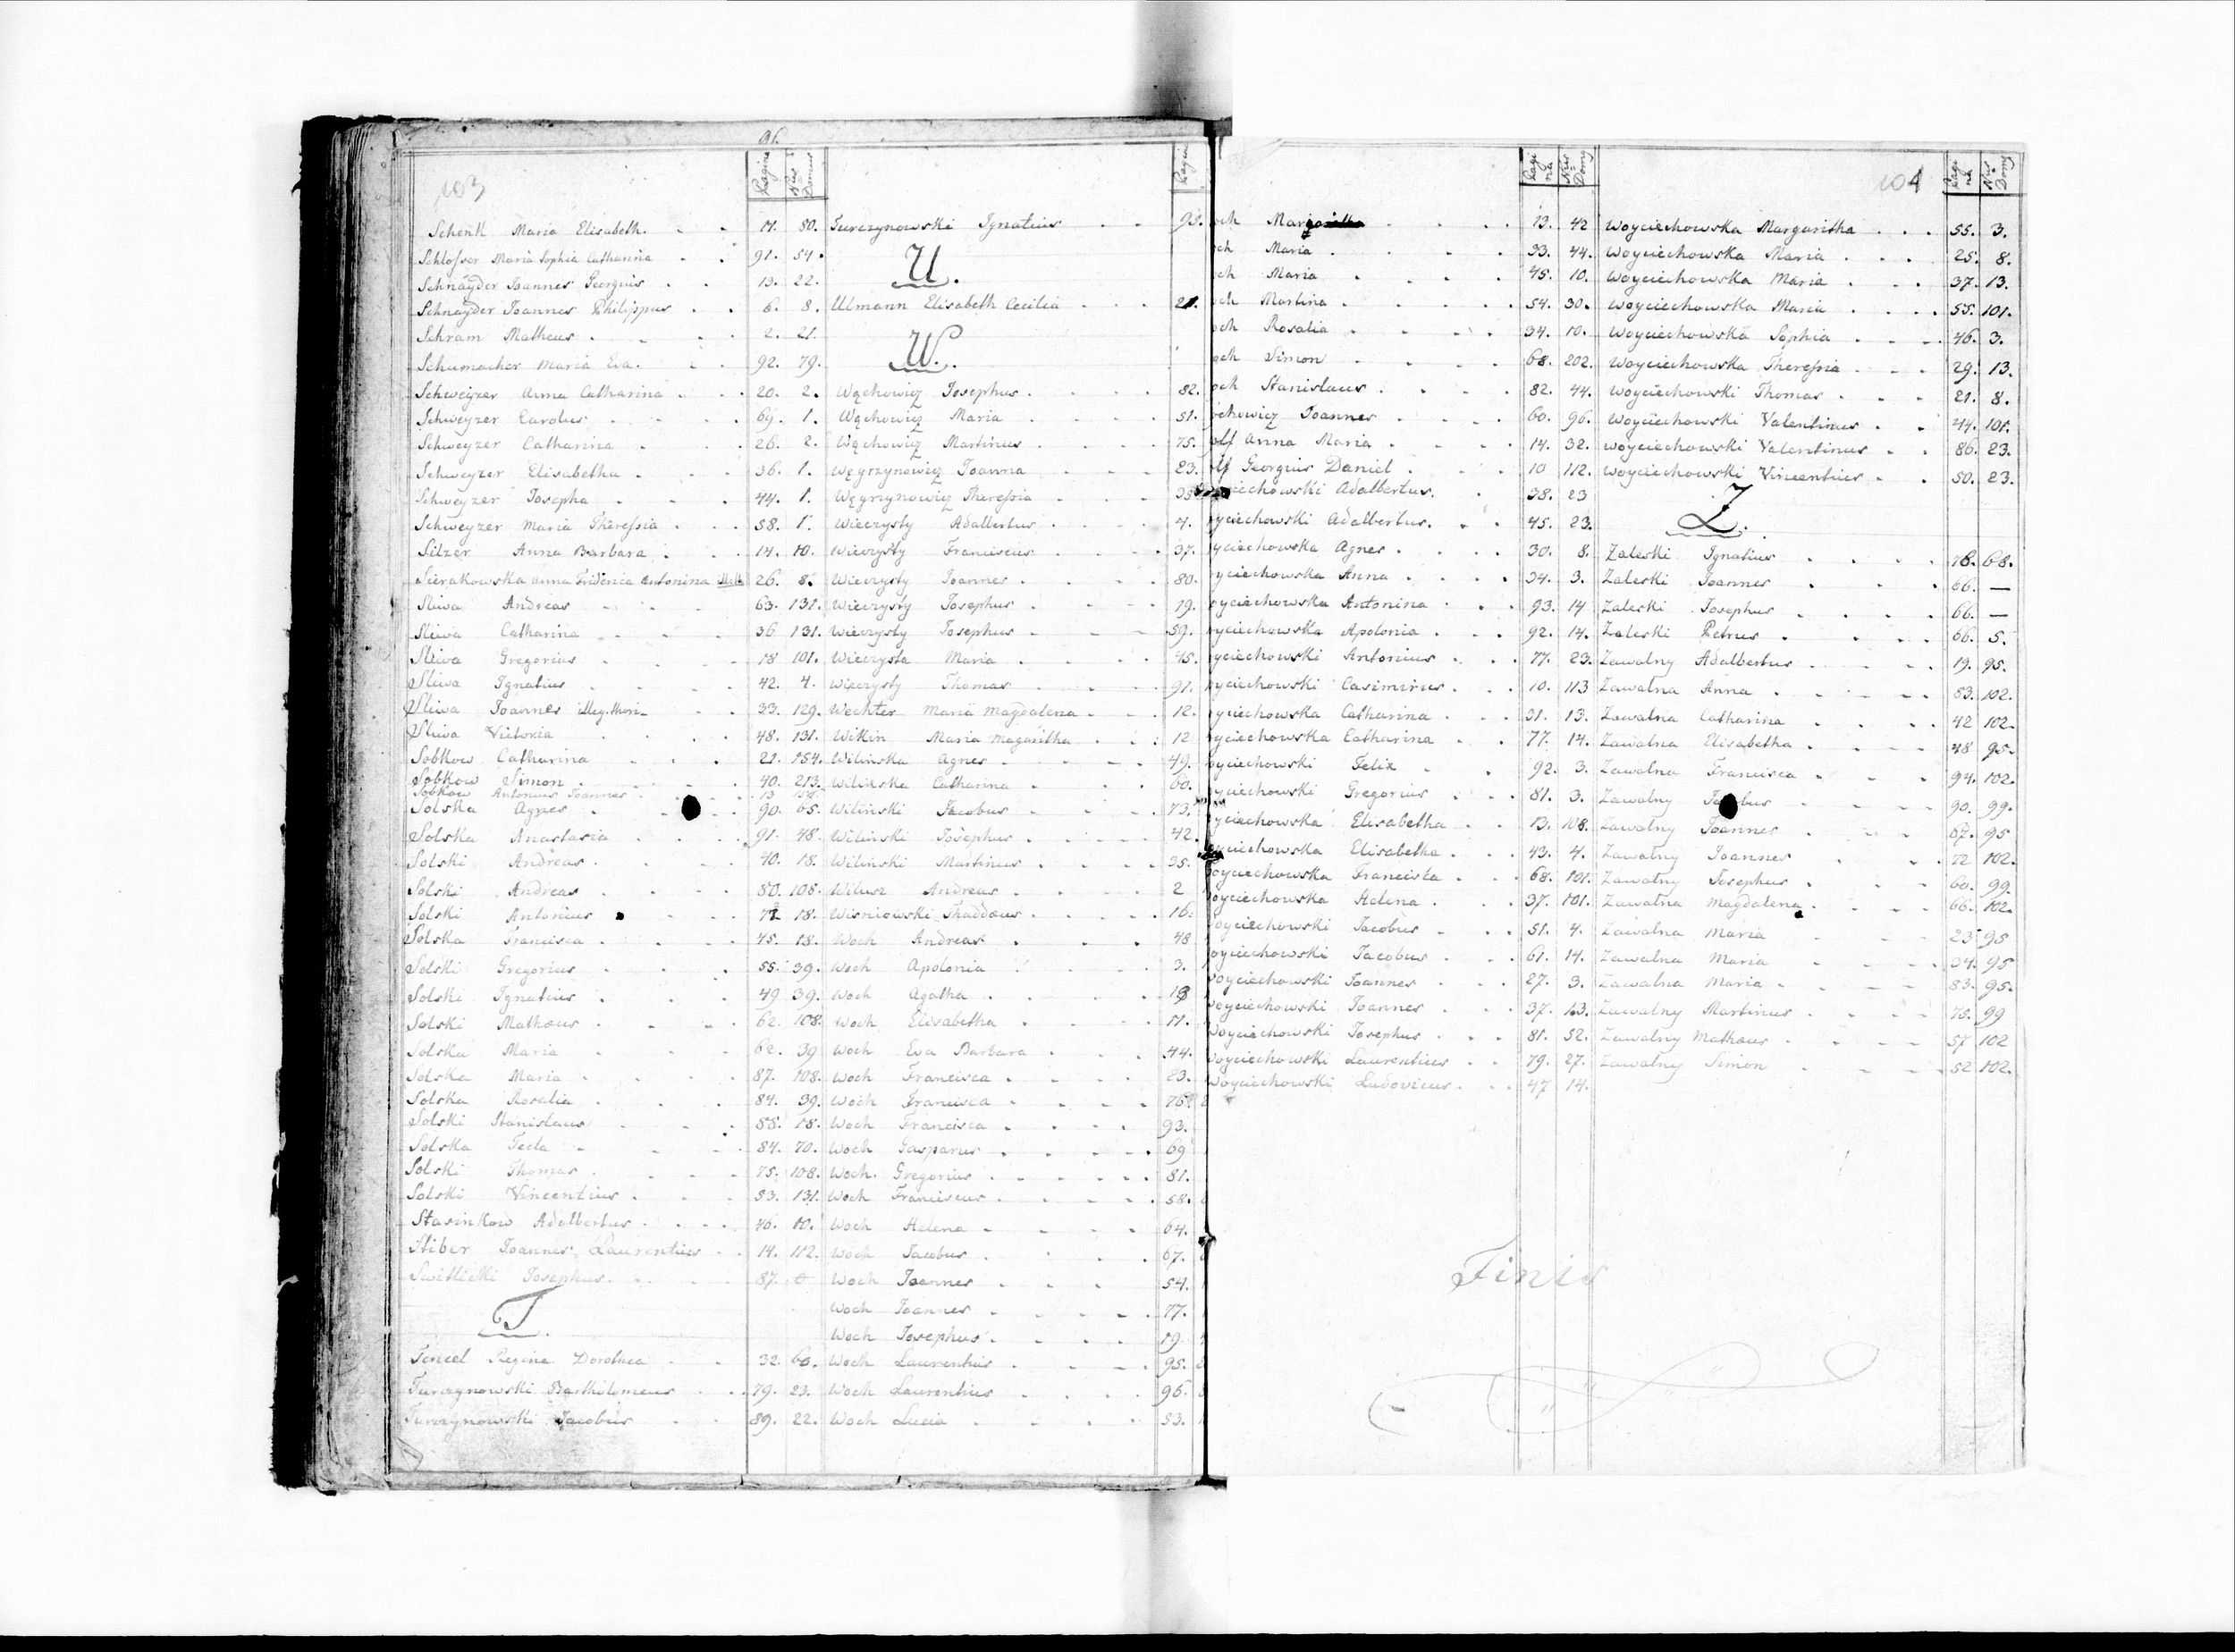 96.
103
Pagina Nrus Domus
Schenk Maria Elisabeth. 11. 80.
Schlosser Maria Sophia Catharina 91. 54.
Schnayder Joannes Georgius 13. 22.
Schnayder Joannes Philippus 6. 8.
Schram Matheus 2. 21.
Schumacher Maria Eva. 92. 79.
Schweyzer Anna Catharina 20. 2.
Schweyzer Carolus 69. 1.
Schweyzer Catharina 26. 2.
Schweyzer Elisabetha 36. 1.
Schweyzer Josepha 44. 1.
Schweyzer Maria Theressia 58. 1.
Silzer Anna Barbara 14. 10.
Sierakowska Anna Antonina 26. 8.
Sliwa Andreas 63. 131.
Sliwa Catharina 36 131.
Sliwa Gregorius 18 101.
Sliwa Ignatius 42. 4.
Sliwa Joannes illeg. thori 33. 129.
Sliwa Victoria 48. 131.
Sobkow Catharina 21. 154.
Sobkow Simon 40. 213.
Sobkow Antonius Joannes
Solska Agnes 90. 65.
Solska Anastasia 91. 48.
Solski Andreas 40. 18.
Solski Andreas 80. 108.
Solski Antonius 18.
Solska Francisca 45. 18.
Solski Gregorius 55. 39.
Solski Ignatius 49 39.
Solski Mathæus 62. 108.
Solska Maria 62. 39
Solska Maria 87. 108.
Solska Rosalia 84. 39.
Solski Stanislaus 88. 18.
Solska Tecla 84. 70.
Solski Thomas 75. 108.
Solski Vincentius 83. 131.
Stasinkow Adalbertus 46. 10.
Stiber Joannes Laurentius 14. 112.
Swietlicki Josephus 87.
T.
Tencel Regina Dorothea 32. 60.
Turczynowski Bartholomeus 79. 23.
Turczynowski Jacobus 89. 22.
Turczynowski Ignatius 93.
U.
Ulmann Elisabeth Cecilia
W.
Wąchowicz Josephus 82.
Wąchowicz Maria 51.
Wąchowicz Martinus 75.
Węgrzynowicz Joanna 23.
Węgrzynowicz Theressia 38
Wieczysty Adalbertus 4.
Wieczysty Franciscus 37.
Wieczysty Joannes 80.
Wieczysty Josephus 19.
Wieczysty Josephus 59.
Wieczysta Maria 45.
Wieczysty Thomas 91.
Wechter Maria Magdalena 12.
Witkin Maria Magaritha 12
Wilinska Agnes 49.
Wilinska Catharina 60.
Wilinski Jacobus 73.
Wilinski Josephus 42.
Wilinski Martinus 35.
Wilusz Andreas 2
Wisniowski Thaddæus 16.
Woch Andreas 48
Woch Apolonia 3.
Woch Agatha
Woch Elisabetha 11.
Woch Eva Barbara 44.
Woch Francisca 23.
Woch Francisca 76
Woch Francisca 93.
Woch Gasparus 69
Woch Gregorius 81.
Woch Franciscus 58.
Woch Helena 64.
Woch Jacobus 67.
Woch Joannes 54.
Woch Joannes 77.
Woch Josephus 19.
Woch Laurentius 95.
Woch Laurentius 96.
Woch Lucia 53.
104
Pagina Nrus Domg
och 13. 42
och Maria 33. 44.
och Maria 45. 10.
och Martina 54. 30.
och Rosalia 34. 10.
och Simon 68. 202.
och Stanislaus 82. 44.
ochowicz Joannes 60. 96.
olf Anna Maria 14. 32.
olf Georgius Daniel 10 112.
yciechowski Adalbertus. 38. 23
yciechowski Adalbertus. 45. 23.
yciechowska Agnes 30. 8.
yciechowska Anna 34. 3.
yciechowska Antonina 93. 14
yciechowska Apolonia 92. 14.
yciechowski Antonius 77. 23.
yciechowski Casimirus 10. 113
yciechowska Catharina 31. 13.
yciechowska Catharina 77. 14.
yciechowski Felix 92. 3.
yciechowski Gregorius 81. 3.
yciechowska Elisabetha 13. 108.
yciechowska Elisabetha 43. 4.
oyciechowska Francisca 68. 101.
oyciechowska Helena 37. 101.
oyciechowski Jacobus 51. 4.
oyciechowski Jacobus 61. 14.
oyciechowski Joannes 27. 3.
oyciechowski Joannes 37. 13.
Woyciechowski Josephus 81. 52.
woyciechowski Laurentius 79. 27.
Woyciechowski Ludovicus 47 14.
Woyciechowska Margaritha 55. 3.
Woyciechowska Maria 25. 8.
Woyciechowska Maria 37. 13.
Woyciechowska Maria 55. 101.
Woyciechowska Sophia 46. 3.
Woyciechowska Theressia 29. 13.
Woyciechowski Thomas 21. 8.
Woyciechowski Valentinus 44. 101.
Woyciechowski Valentinus 86. 23.
Woyciechowski Vincentius 50. 23.
Z.
Zaleski Ignatius 78. 68.
Zaleski Joannes 66. —
Zaleski Josephus 66. —
Zaleski Petrus 66. 5.
Zawalny Adalbertus 19. 95.
Zawalna Anna 53. 102.
Zawalna Catharina 42 102.
Zawalna Elisabetha 48 95.
Zawalna Francisca 94. 102.
Zawalny Jacobus 90. 99.
Zawalny Joannes 67. 95
Zawalny Joannes 72 102.
Zawalny Josephus 60. 99.
Zawalna Magdalena 66. 102.
Zawalna Maria 23 95
Zawalna Maria 34. 95
Zawalna Maria 83. 95.
Zawalny Martinus 75. 99
Zawalny Mathæus 57 102
Zawalny Simon 52 102.
Finis